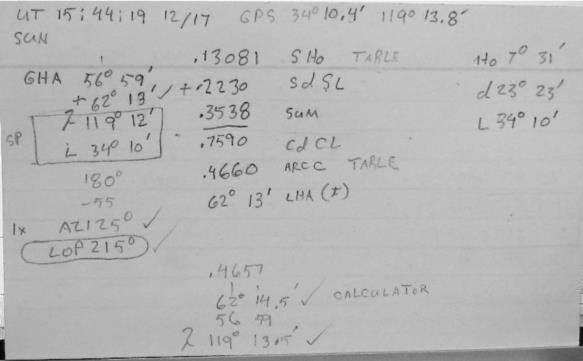 UT 15:44:19 12/17 GPS 34° 10.4' 119° 13.8'
SUN
.13081 S Ho TABLE Ho 7° 31'
GHA 56° 59' +.2230 Sd SL d 23° 23'
+ 62° 13' ✓ .3538 SUM L 34° 10'
λ 119° 12' .7590 Cd CL
SP L 34° 10' .4660 ARCC TABLE
180° 62° 13' LHA (±)
-55
1x AZ 125° ✓
LOP 215° ✓
.4657
62° 14.5' ✓ CALCULATOR
56 59
λ 119° 13.5' ✓